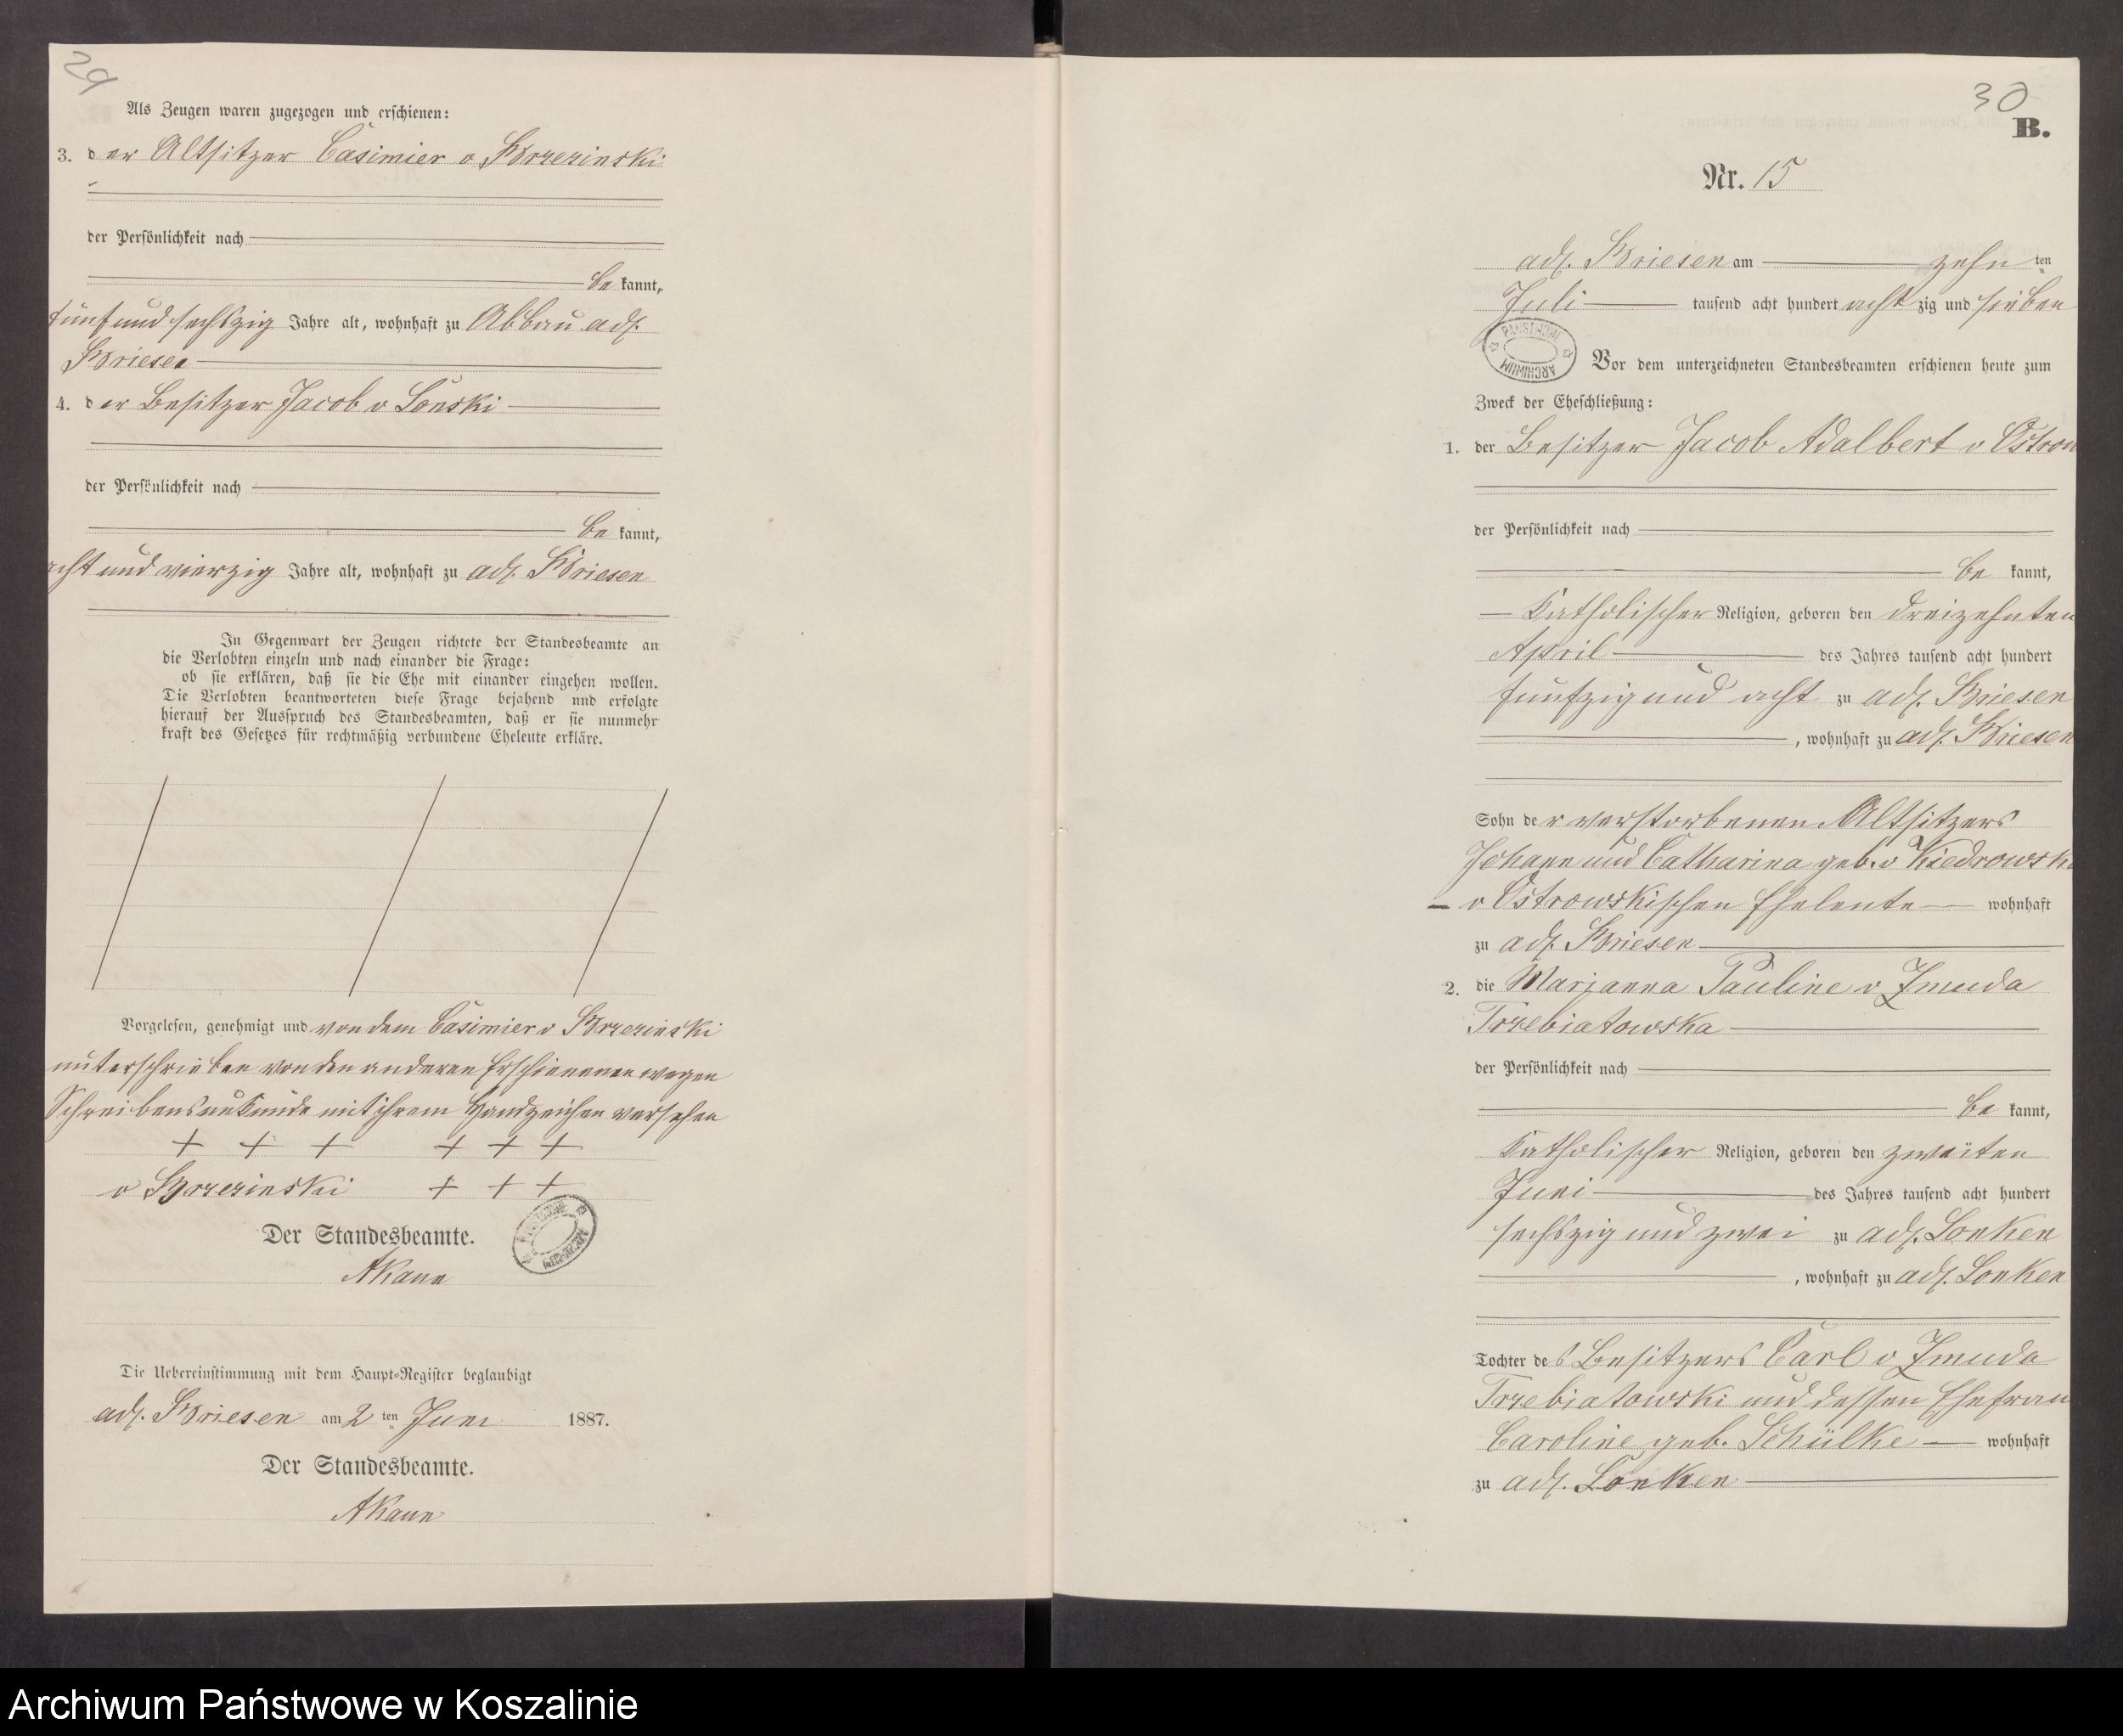 29
Als Zeugen waren zugezogen und erschienen:
3. der Altsitzer Casimier v Brzezinski
der Persönlichkeit nach
be kannt,
fünf und sechszig Jahre alt, wohnhaft zu Abbau adl.
Briesen
4. der Besitzer Jacob v Lonski
der Persönlichkeit nach
be kannt,
acht und vierzig Jahre alt, wohnhaft zu adl. Briesen
In Gegenwart der Zeugen richtete der Standesbeamte an
die Verlobten einzeln und nach einander die Frage:
ob sie erklären, daß sie die Ehe mit einander eingehen wollen.
Die Verlobten beantworteten diese Frage bejahend und erfolgte
hierauf der Ausspruch des Standesbeamten, daß er sie nunmehr
kraft des Gesetzes für rechtmäßig verbundene Eheleute erkläre.
Vorgelesen, genehmigt und von dem Casimier v Brzezinski
unterschrieben von den anderen Erschienenen wegen
Schreibensunkunde mit ihrem Handzeichen versehen
+ + + + + +
v Brzezinski + + +
Der Standesbeamte.
AKann
Die Uebereinstimmung mit dem Haupt-Register beglaubigt
adl. Briesen am 2 ten Juni 1887.
Der Standesbeamte.
AKann
30
B.
Nr. 15
adl. Briesen am zehn ten
Juli tausend acht hundert acht zig und sieben
ARCHIWUM
Vor dem unterzeichneten Standesbeamten erschienen heute zum
Zweck der Eheschließung:
1. der Besitzer Jacob Adalbert v Ostrow
der Persönlichkeit nach
be kannt,
Katholischer Religion, geboren den dreizehnten
April des Jahres tausend acht hundert
fünfzig und acht zu adl. Briesen
, wohnhaft zu adl. Briesen
Sohn der verstorbenen Altsitzers
Johann und Catharina geb. v Kiedrowska
v Ostrowskischen Eheleute wohnhaft
zu adl. Briesen
2. die Marianna Pauline v Zmuda
Trzebiatowska
der Persönlichkeit nach
be kannt,
Katholischer Religion, geboren den zweiten
Juni des Jahres tausend acht hundert
sechszig und zwei zu adl. Lonken
, wohnhaft zu adl. Lonken
Tochter des Besitzers Carl v Zmuda
Trzebiatowski und dessen Ehefrau
Caroline geb. Schülke wohnhaft
zu adl. Lonken
Archiwum Państwowe w Koszalinie